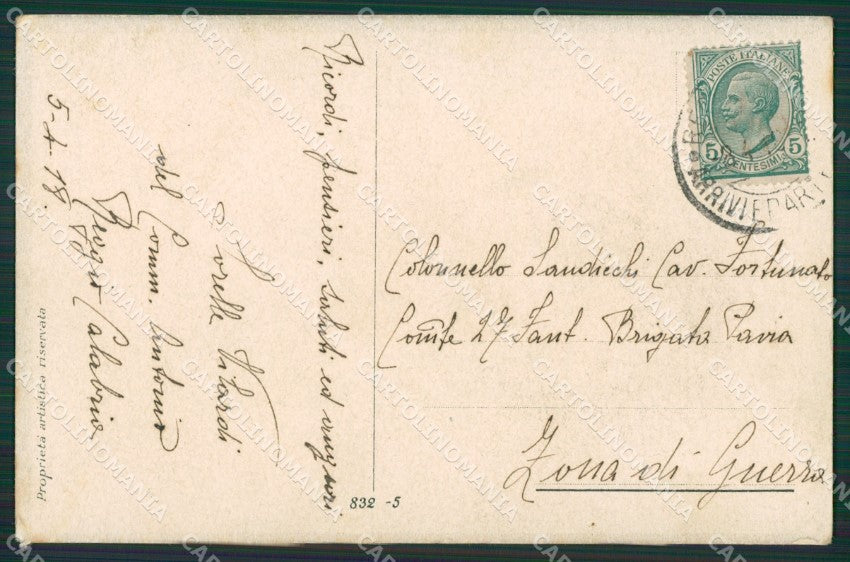 Ricordi, pensieri, saluti ed auguri
Sorelle Vilardi
del Comm. Antonio
Reggio Calabria
5-4-18.
Proprietà artistica riservata
832 -5
POSTE ITALIANE
5 5
CENTESIMI
ARRIVI E PART
Colonnello Sandicchi Cav. Fortunato
Comte 27 Fant. Brigata Pavia
Zona di Guerra
CARTOLINOMANIA